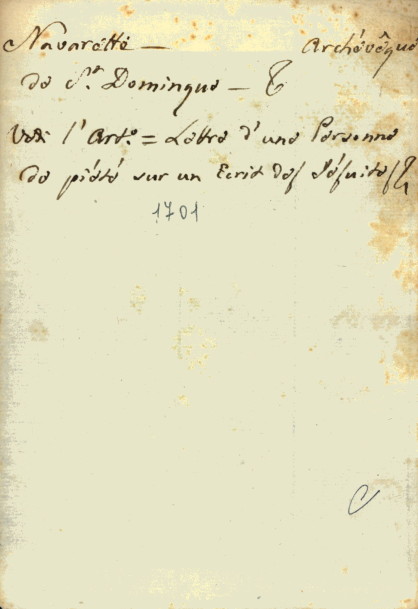 Navarette — Archévêque
de St. Domingue —
Vedi l'Arto. = Lettre d'une Personne
de piété sur un Ecrit des Jésuites
1701
C